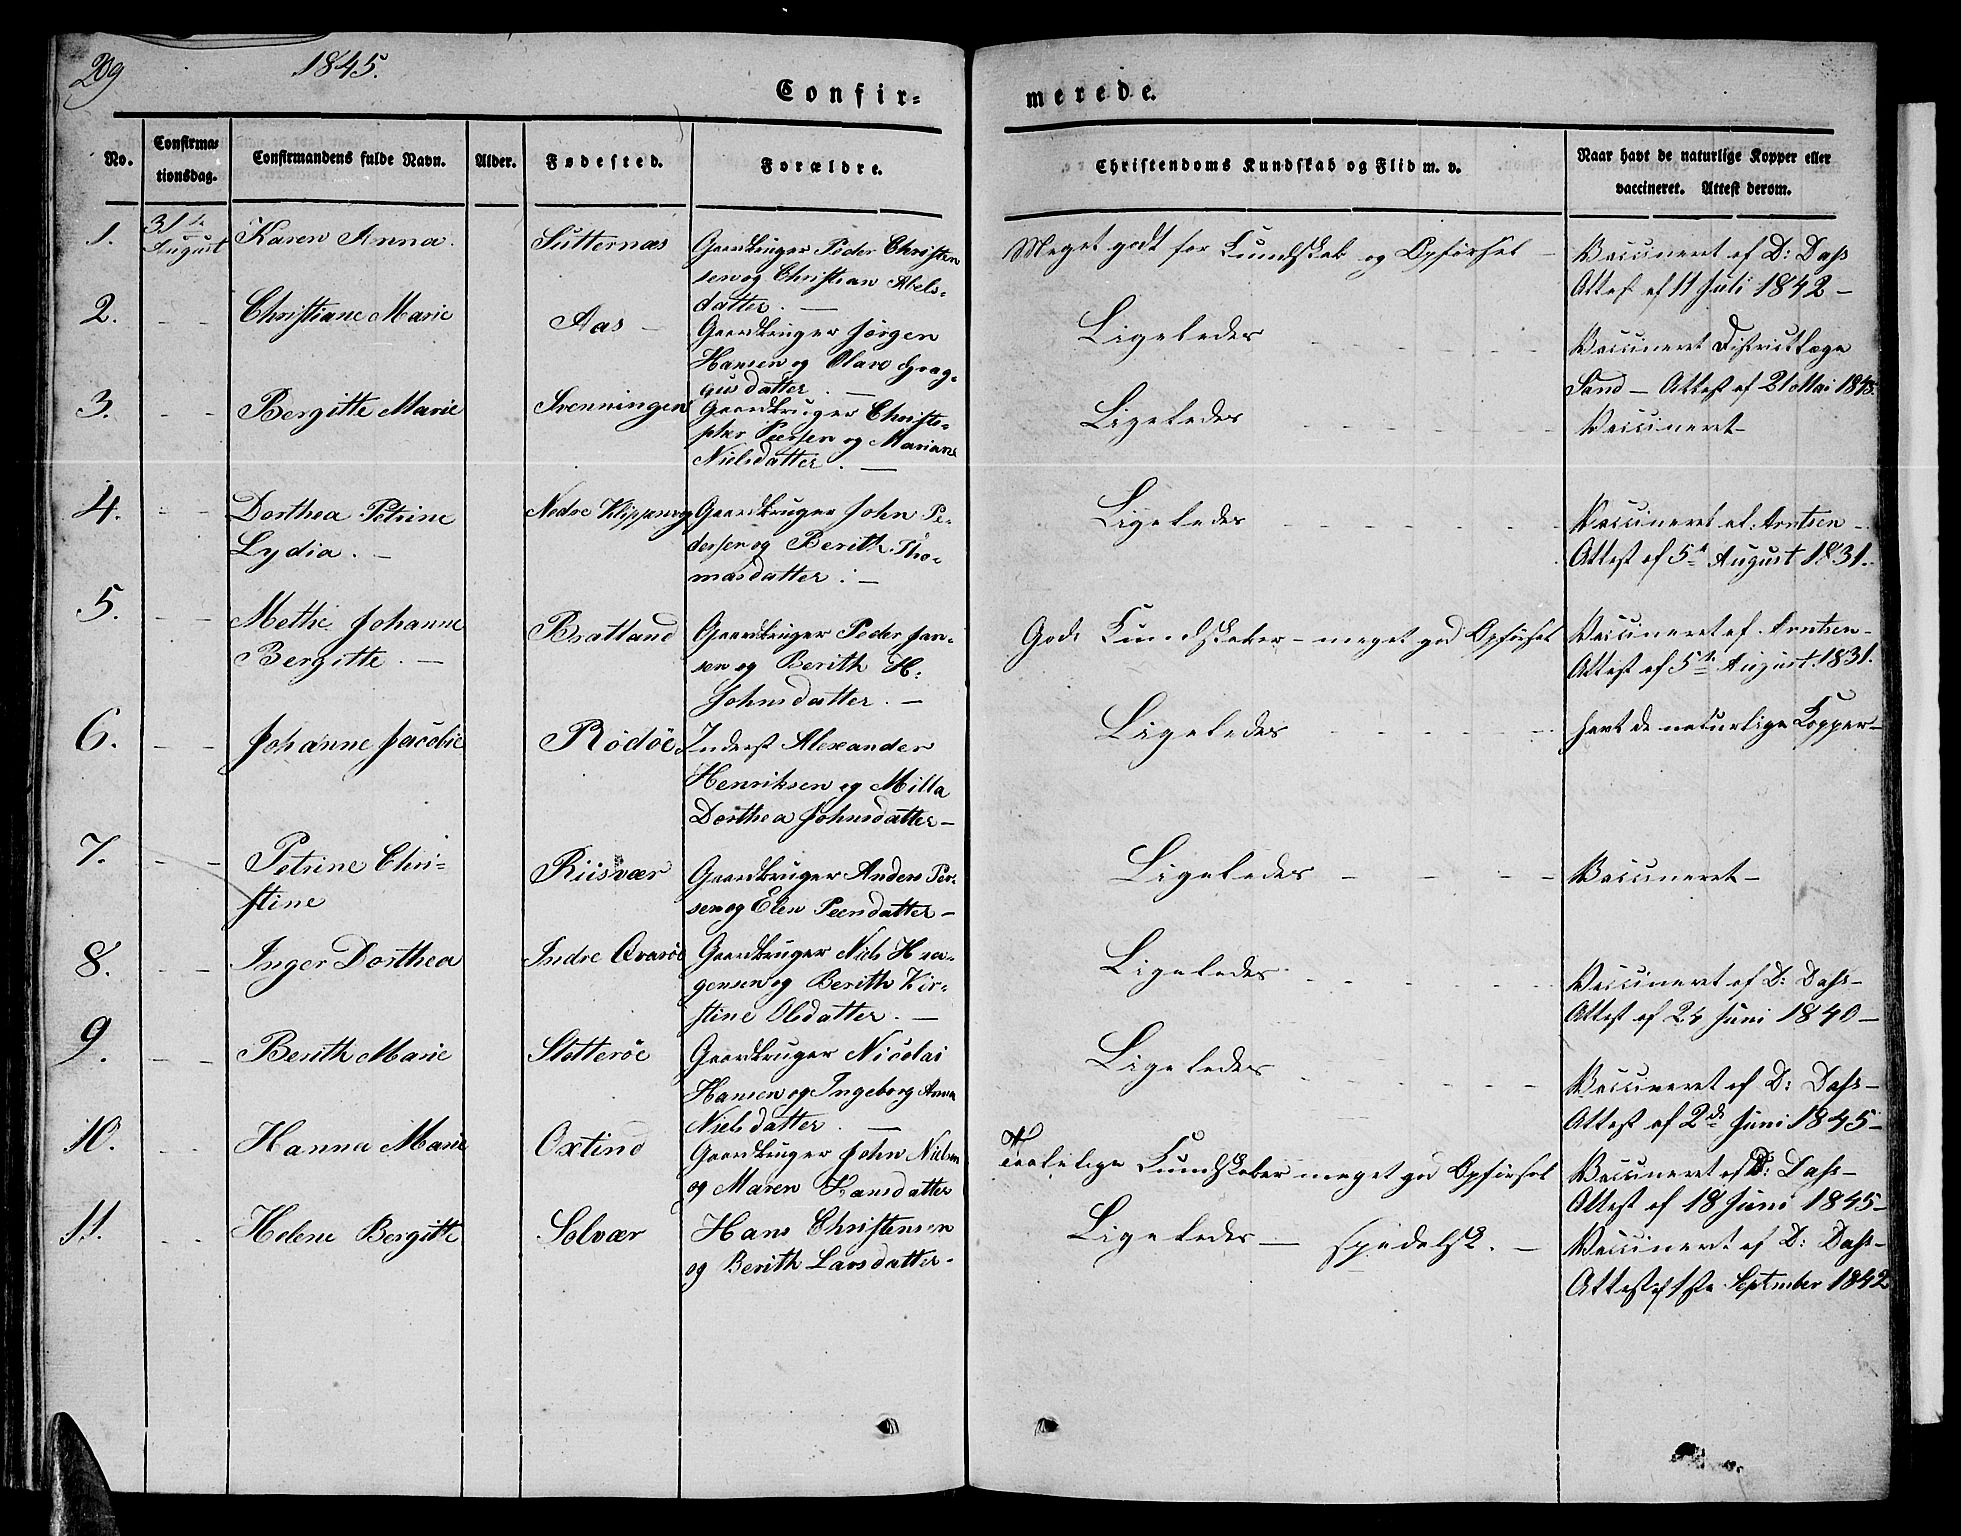 29
1845.
Confir-
merede.
No.
Confirma-
tionsdag.
Confirmandens fulde Navn.
Alder.
Fødested.
Forældre.
Christendoms Kundskab og Flid m. v.
Naar havt de naturlige Kopper eller
vaccineret. Attest derom.
1.
31te
August
Karen Anna.
Sutternæs
Gaardbruger Peder Christen
sen og Christian Abels-
datter. —
Meget godt for Kundskab og Opførsel —
Vaccineret af D: Dass
Attest af 11 Juli 1842 —
2.
Christiane Marie
Aas —
Gaardbruger Jørgen
Hansen og Olave
datter. —
Ligeledes
Vaccineret Districtlæge
Sand — Attest af 21 Mai 1845.
3.
Bergitte Marie
Svenningen
Gaardbruger Christo-
pher Peersen og Mariane
Nielsdatter. —
Ligeledes
Vaccineret —
4.
Dorthea Petrine
Lydia. —
Nedre Klippenvog
Gaardbruger John Pe-
dersen og Berith Tho-
masdatter. —
Ligeledes
Vaccineret af: Arntsen —
Attest af 5te August 1831.
5.
Methe Johanne
Bergitte. —
Bratland
Gaardbruger Peder Jan-
sen og Berith H.
Johnsdatter. —
Gode Kundskaber — meget god Opførsel
Vaccineret af Arntsen —
Attest af 5te August 1831.
6.
Johanne Jacobie
Rödöe
Inderst Alexander
Henriksen og Milla
Dorthea Johnsdatter —
Ligeledes
havt de naturlige Kopper —
7.
Petrine Chri-
stine
Riisvær
Gaardbruger Anders Per-
sen og Elen Peersdatter —
Ligeledes
Vaccineret —
8.
Inger Dorthea
Indre Qvaröe
Gaardbruger Niels Haa-
gensen og Berith Kir-
stine Olsdatter. —
Ligeledes
Vaccineret af D: Dass —
Attest af 24 Juni 1840 —
9.
Berith Marie
Slotteröe
Gaardbruger Nicolai
Hansen og Ingeborg Anna
Nielsdatter. —
Ligeledes
Vaccineret af D: Dass —
Attest af 2de Juni 1845 —
10.
Hanna Marie
Oxtind
Gaardbruger John Nielsen
og Maren Hansdatter
Taalelige Kundskaber meget god Opførsel
Vaccineret af D: Dass —
Attest af 18 Juni 1845 —
11.
Helene Bergitte
Selvær
Hans Christensen
og Berith Larsdatter.
Ligeledes — spedalsk. —
Vaccineret af D: Dass —
Attest af 1ste September 1842